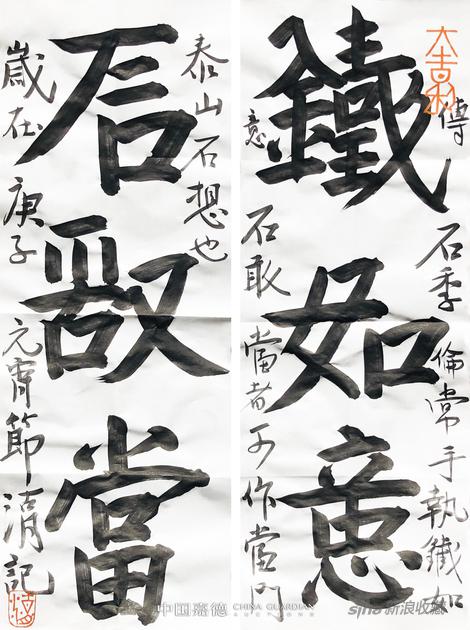 大吉利
傳石季倫常手執鐵如
鐵如意
意石敢當者可作當門
泰山石想也
石敢當
歲在庚子元宵節清記
中国嘉德 CHINA GUARDIAN
sina新浪收藏